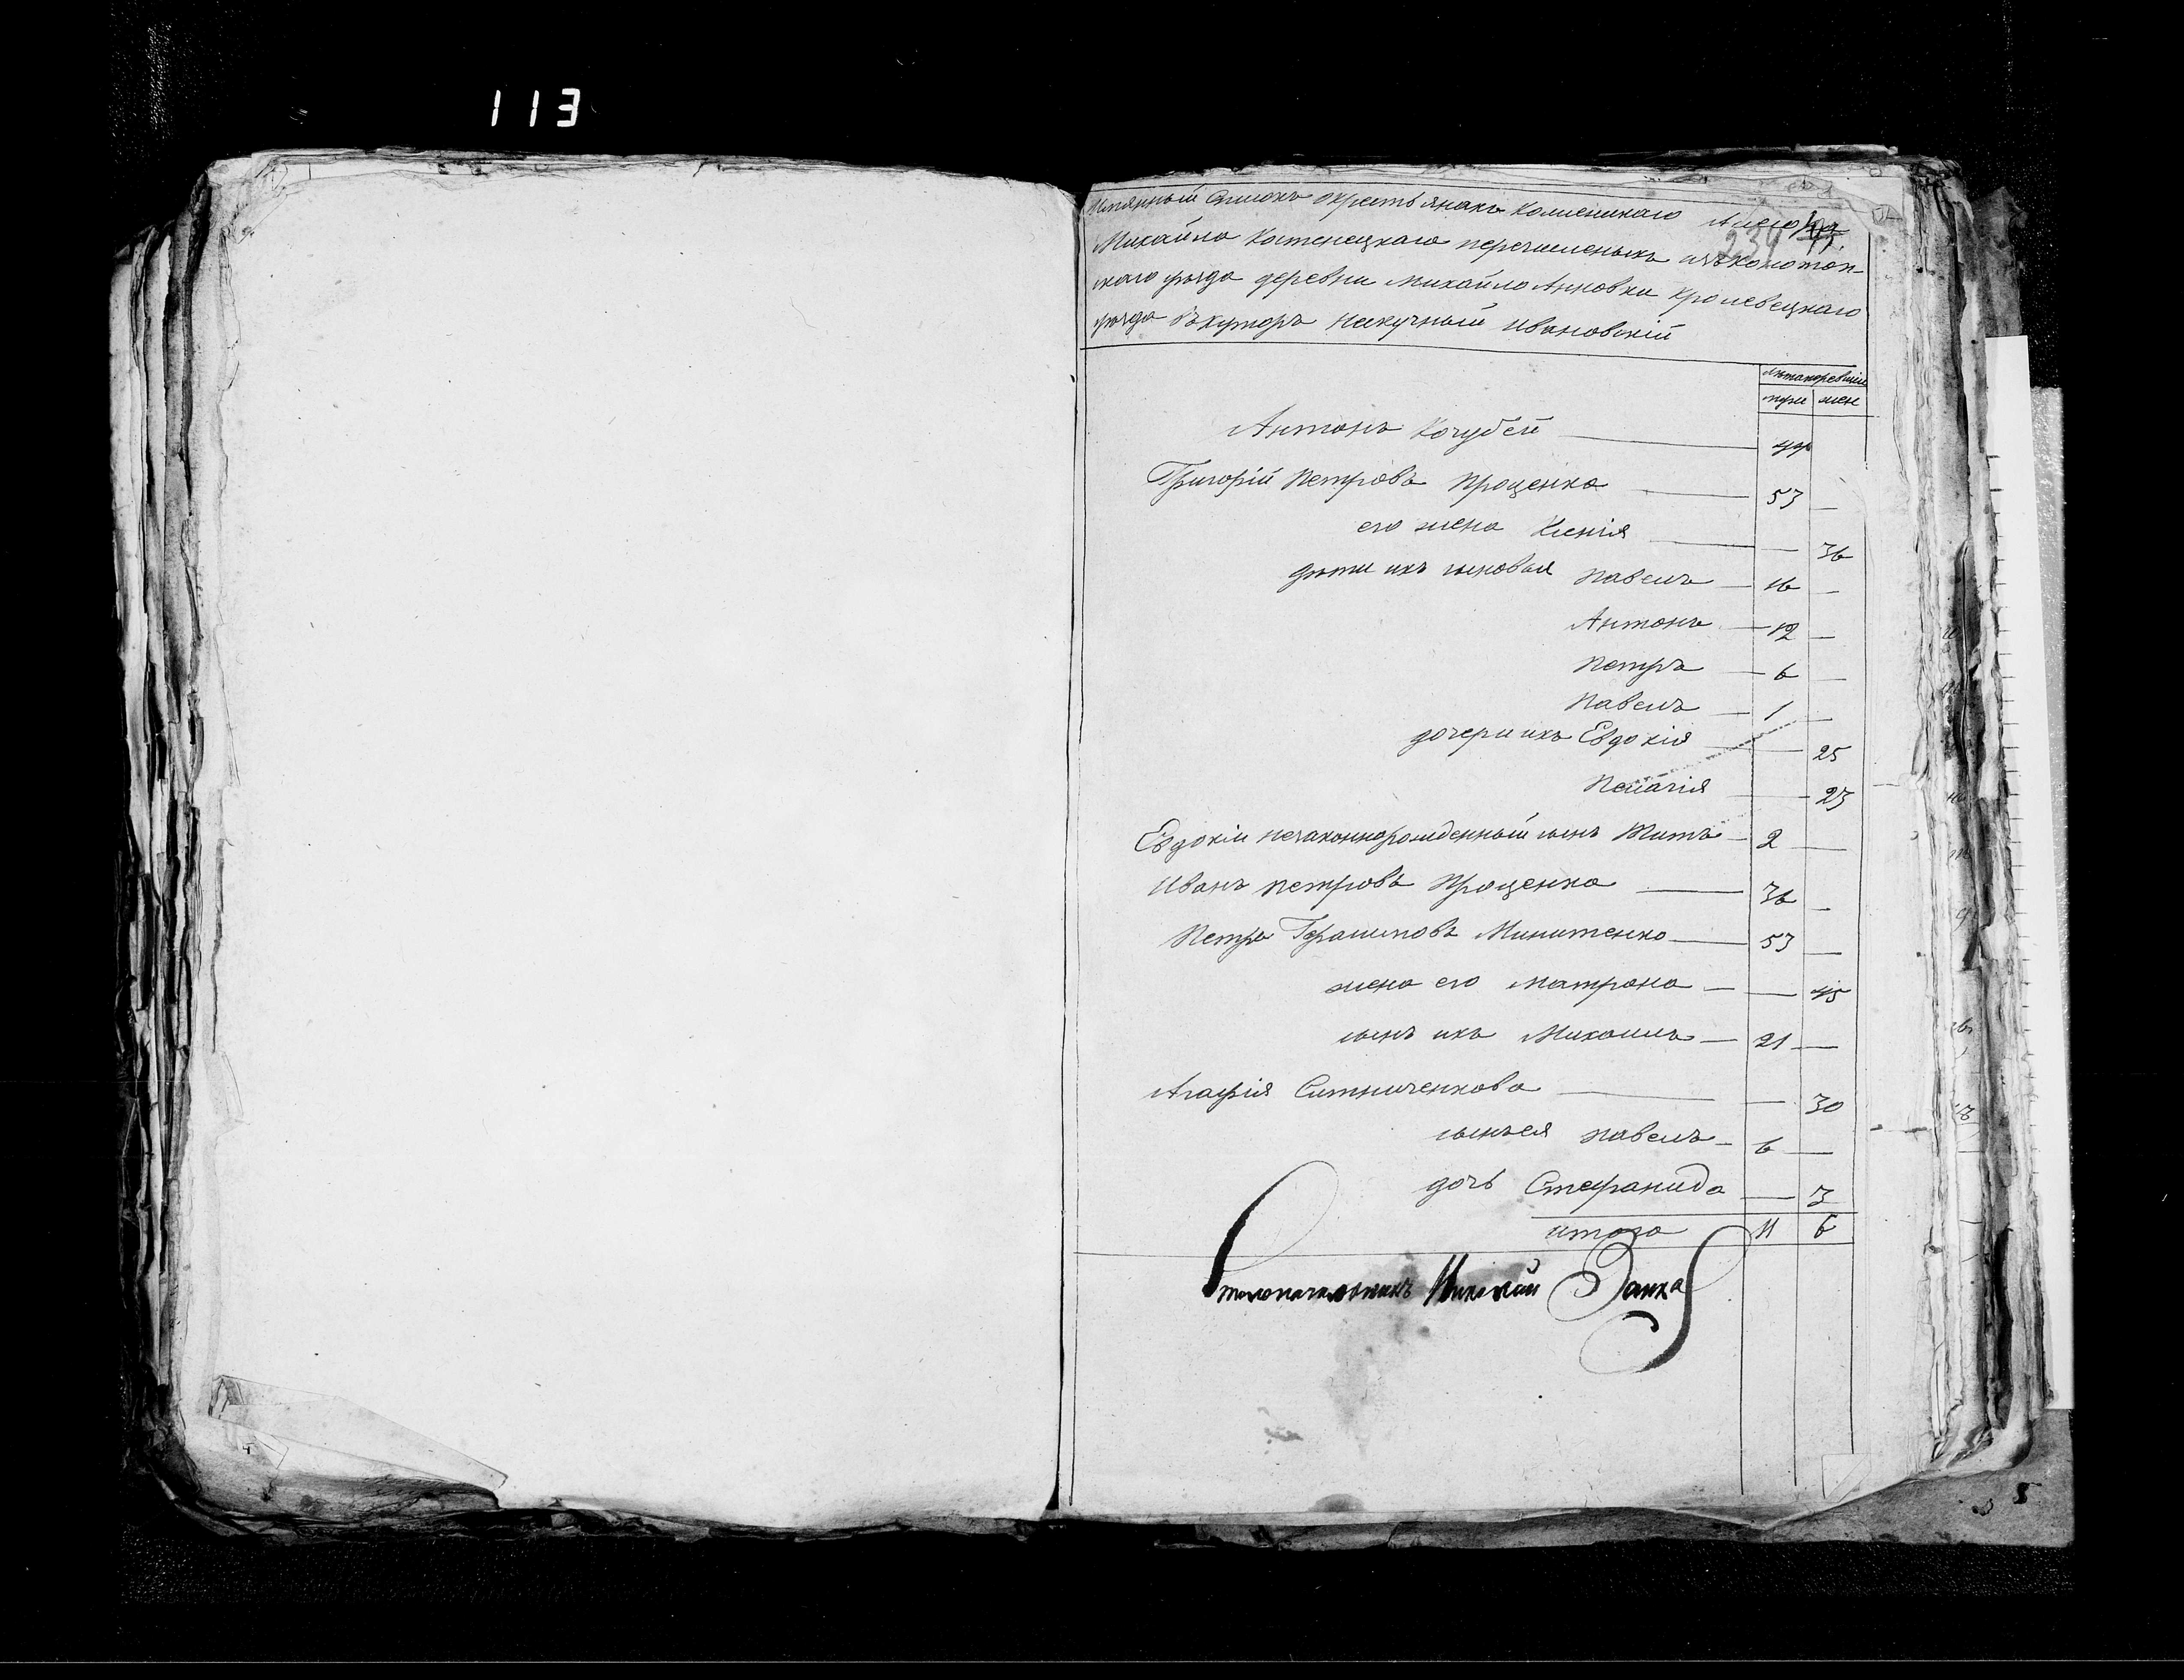 113
Имянный Списокъ окрестьянахъ Колменикаго
234
Михайла Костенецкаго перечисленыхъ изъ конотоп-
скаго уѣзда деревни Михайло Анновки Кролевецкаго
уѣзда въ хуторъ Нескучный Ивановскій
лѣта по ревизіи
муж жен
Антонъ Кочубей
Григорій Петровъ Проценко 53 —
его жена Ксенія — 36
дѣти ихъ сыновья Павелъ 16 —
Антонъ 12 —
Петръ 6 —
Павелъ 1 —
дочери ихъ Евдокія — 25
Пелагія — 23
Евдокіи незаконнорожденный сынъ Титъ 2 —
Иванъ Петровъ Проценко 36 —
Петръ Герасимовъ Миниченко 53 —
жена его Матрона — 45
сынъ ихъ Михаилъ 21 —
Агафія Ситниченкова — 30
сынъ ея Павелъ 6 —
дочь Стефанида — 3
итого 11 6
Столоначальникъ Николай Заика